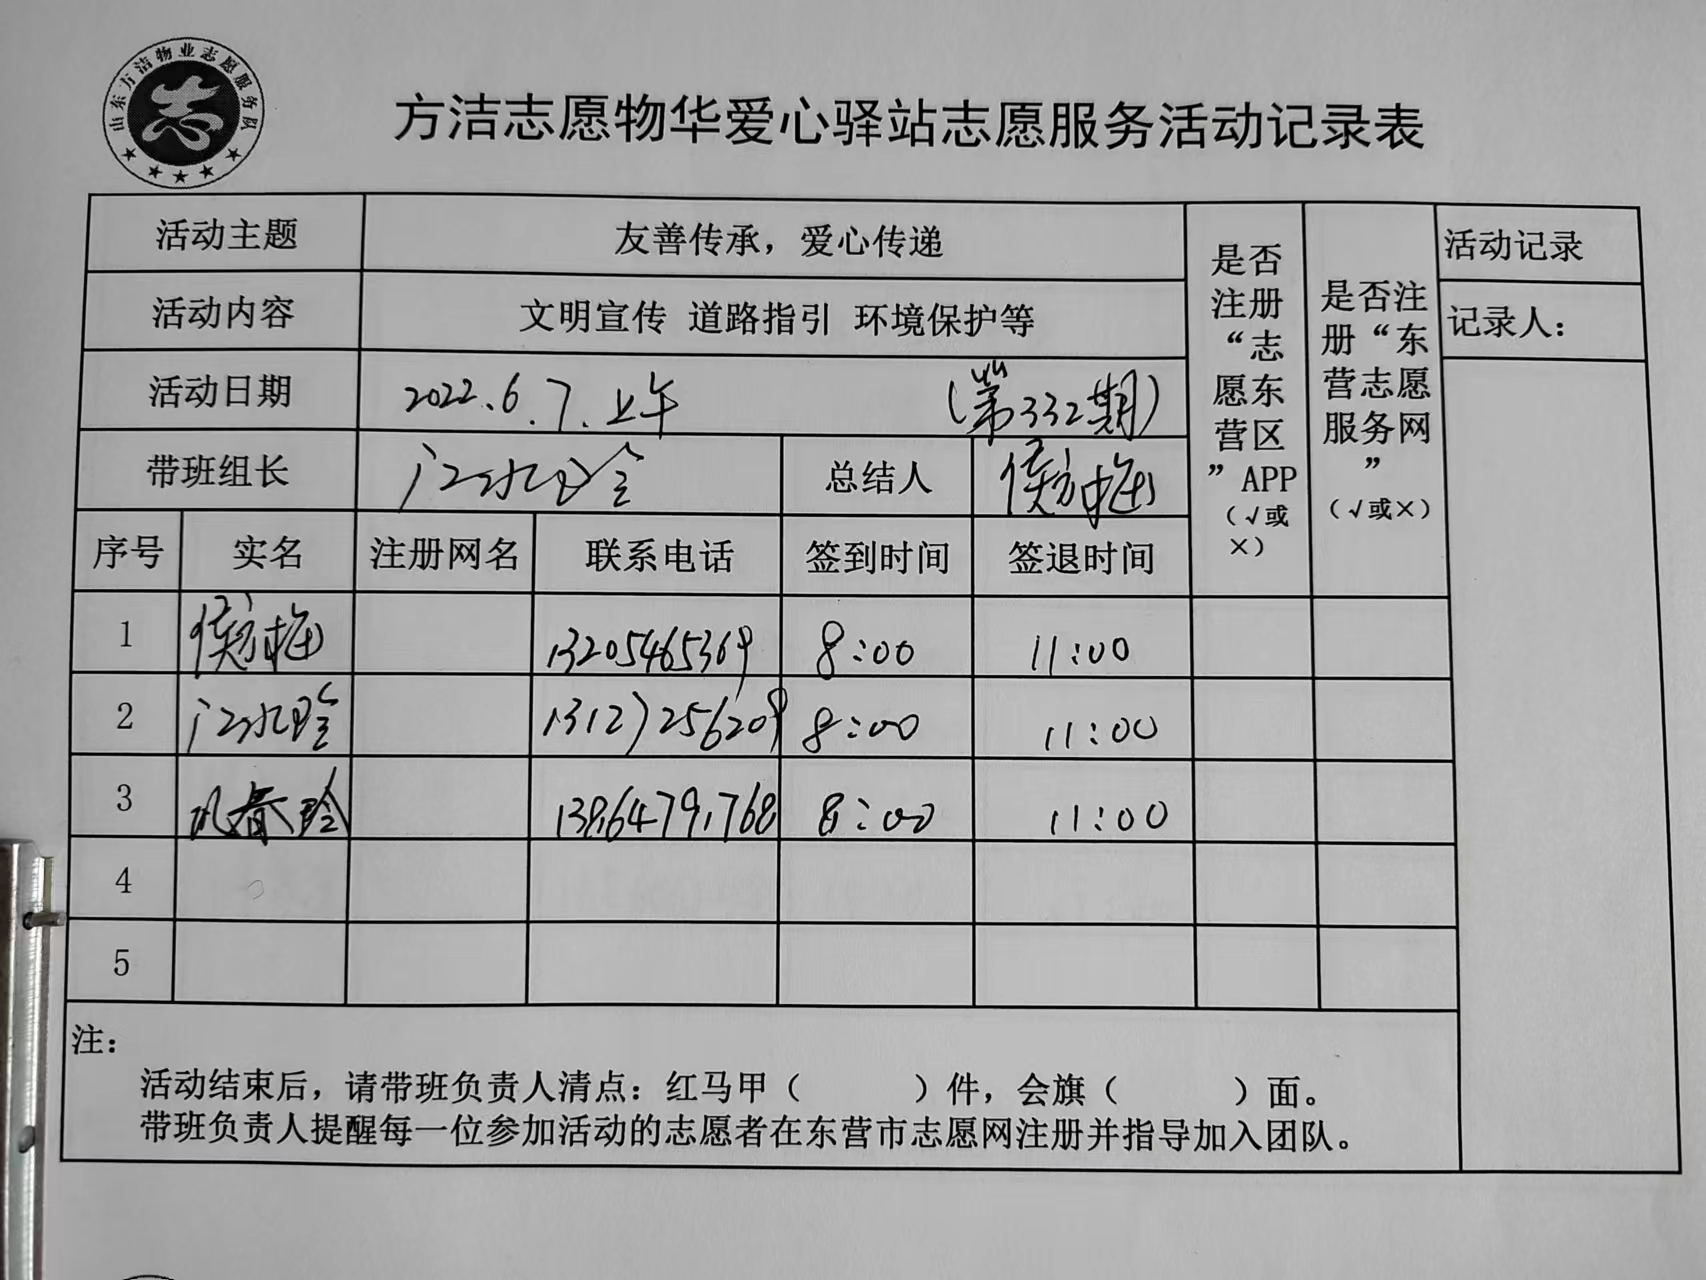 山东方洁物业志愿服务队
志
方洁志愿物华爱心驿站志愿服务活动记录表
活动主题 友善传承，爱心传递
活动内容 文明宣传 道路指引 环境保护等
活动日期 2022.6.7.上午 （第332期）
带班组长 江水玲 总结人 侯方梅
是否
注册
“志
愿东
营区
”APP
（√或
×）
是否注
册“东
营志愿
服务网
”
（√或×）
活动记录
记录人：
序号 实名 注册网名 联系电话 签到时间 签退时间
1 侯方梅 13205465369 8:00 11:00
2 江水玲 13127256209 8:00 11:00
3 春玲 8:00 11:00
4
5
注：
活动结束后，请带班负责人清点：红马甲（ ）件，会旗（ ）面。
带班负责人提醒每一位参加活动的志愿者在东营市志愿网注册并指导加入团队。